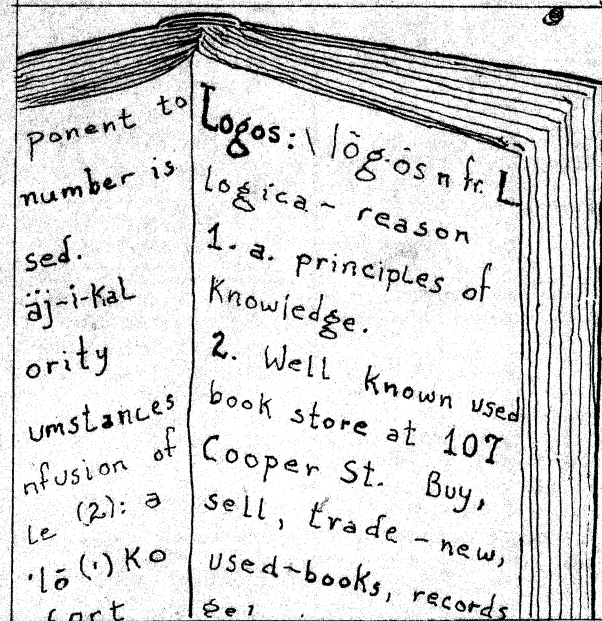 ponent to
number is
sed.
äj-i-kal
ority
umstances
nfusion of
le (2): a
'lō (') ko
fort
Logos: \ lōg·ōs n fr. L
logica - reason
1. a. principles of
knowledge.
2. Well known used
book store at 107
Cooper St. Buy,
sell, trade - new,
used-books, records